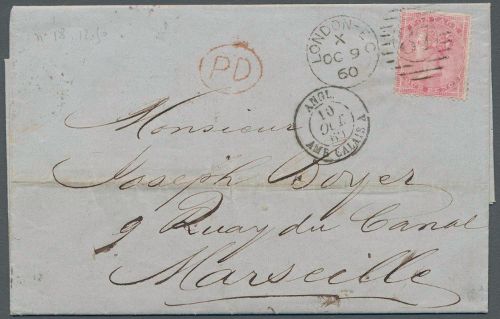 PD
LONDON-EC
X
OC 9
60
ANGL.
10
OCT.
60
AMB. CALAIS A
Monsieur
Joseph Boyer
9 Quay du Canal
Marseille